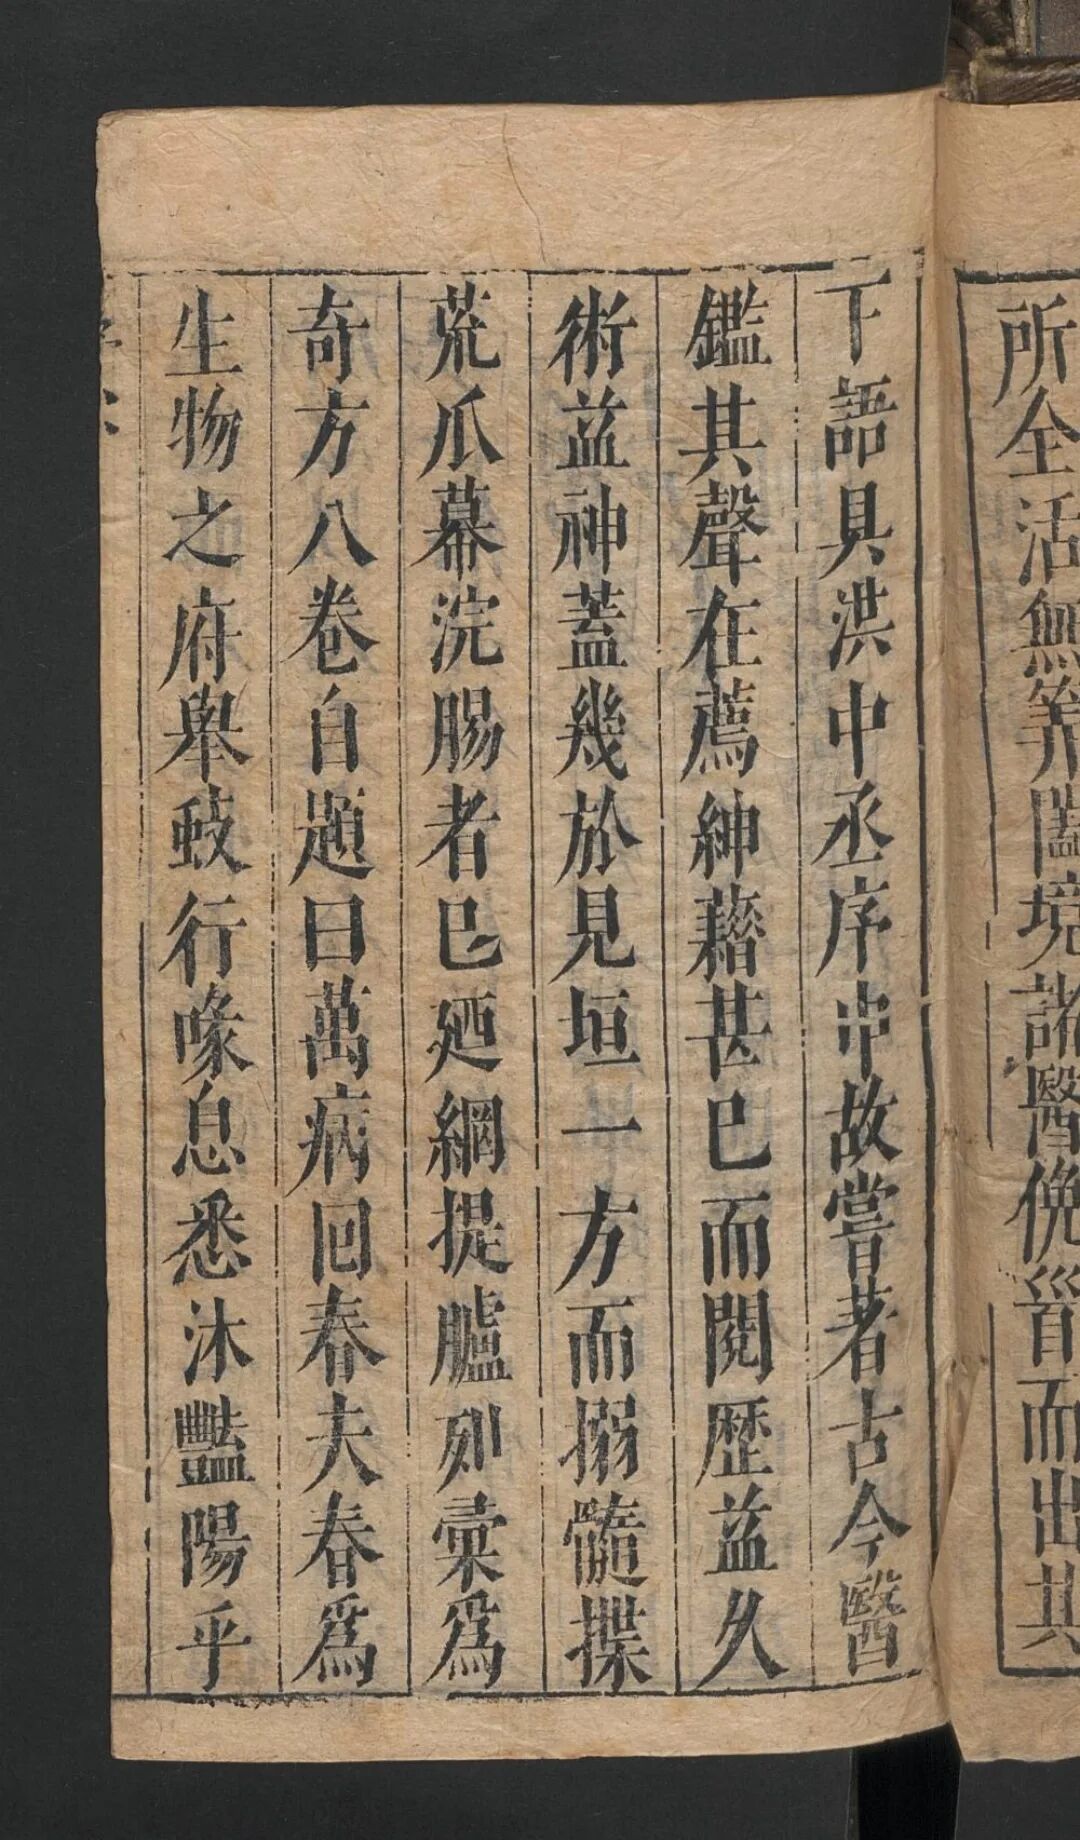 所全活無筭闔境諸醫俛首而出其
下語具洪中丞序中故嘗著古今醫
鑑其聲在薦紳藉甚已而閱歷益久
術益神蓋幾於見垣一方而搦髓揲
荒爪幕浣腸者已廼網提臚列彙為
奇方八卷自題曰萬病回春夫春為
生物之府舉蚑行喙息悉沐豔陽乎